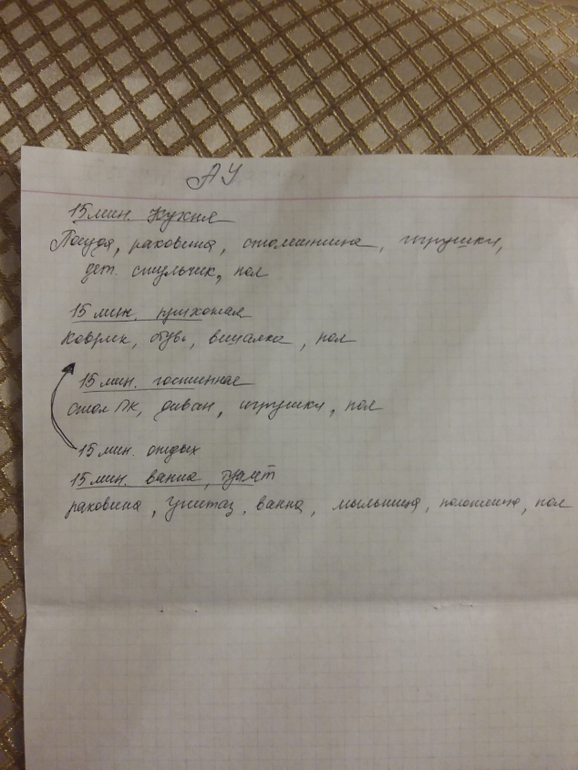 АУ
15 мин. Кухня
Посуда, раковина, столешница, игрушки,
дет. стульчик, пол
15 мин. прихожая
Коврик, обувь, вешалка, пол
15 мин. гостинная
стол ПК, диван, игрушки, пол
15 мин. отдых
15 мин. ванна, туалет
раковина, Унитаз, ванна, мыльница, полотенца, пол